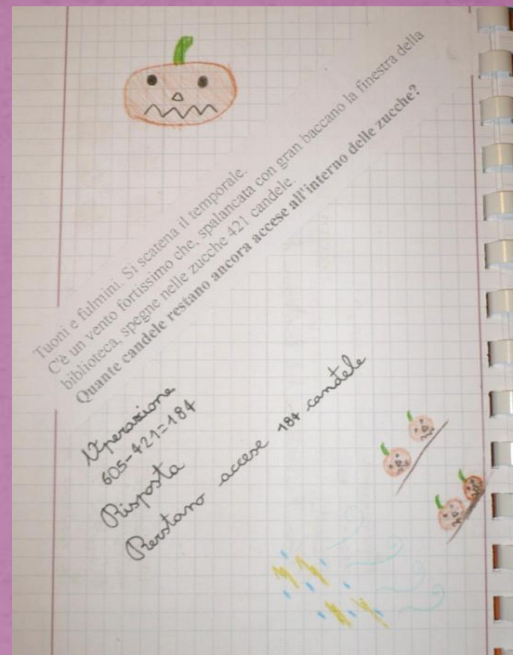 Tuoni e fulmini. Si scatena il temporale.
C'è un vento fortissimo che, spalancata con gran baccano la finestra della
biblioteca, spegne nelle zucche 421 candele.
Quante candele restano ancora accese all'interno delle zucche?
Operazione
605-421=184
Risposta
Restano accese 184 candele